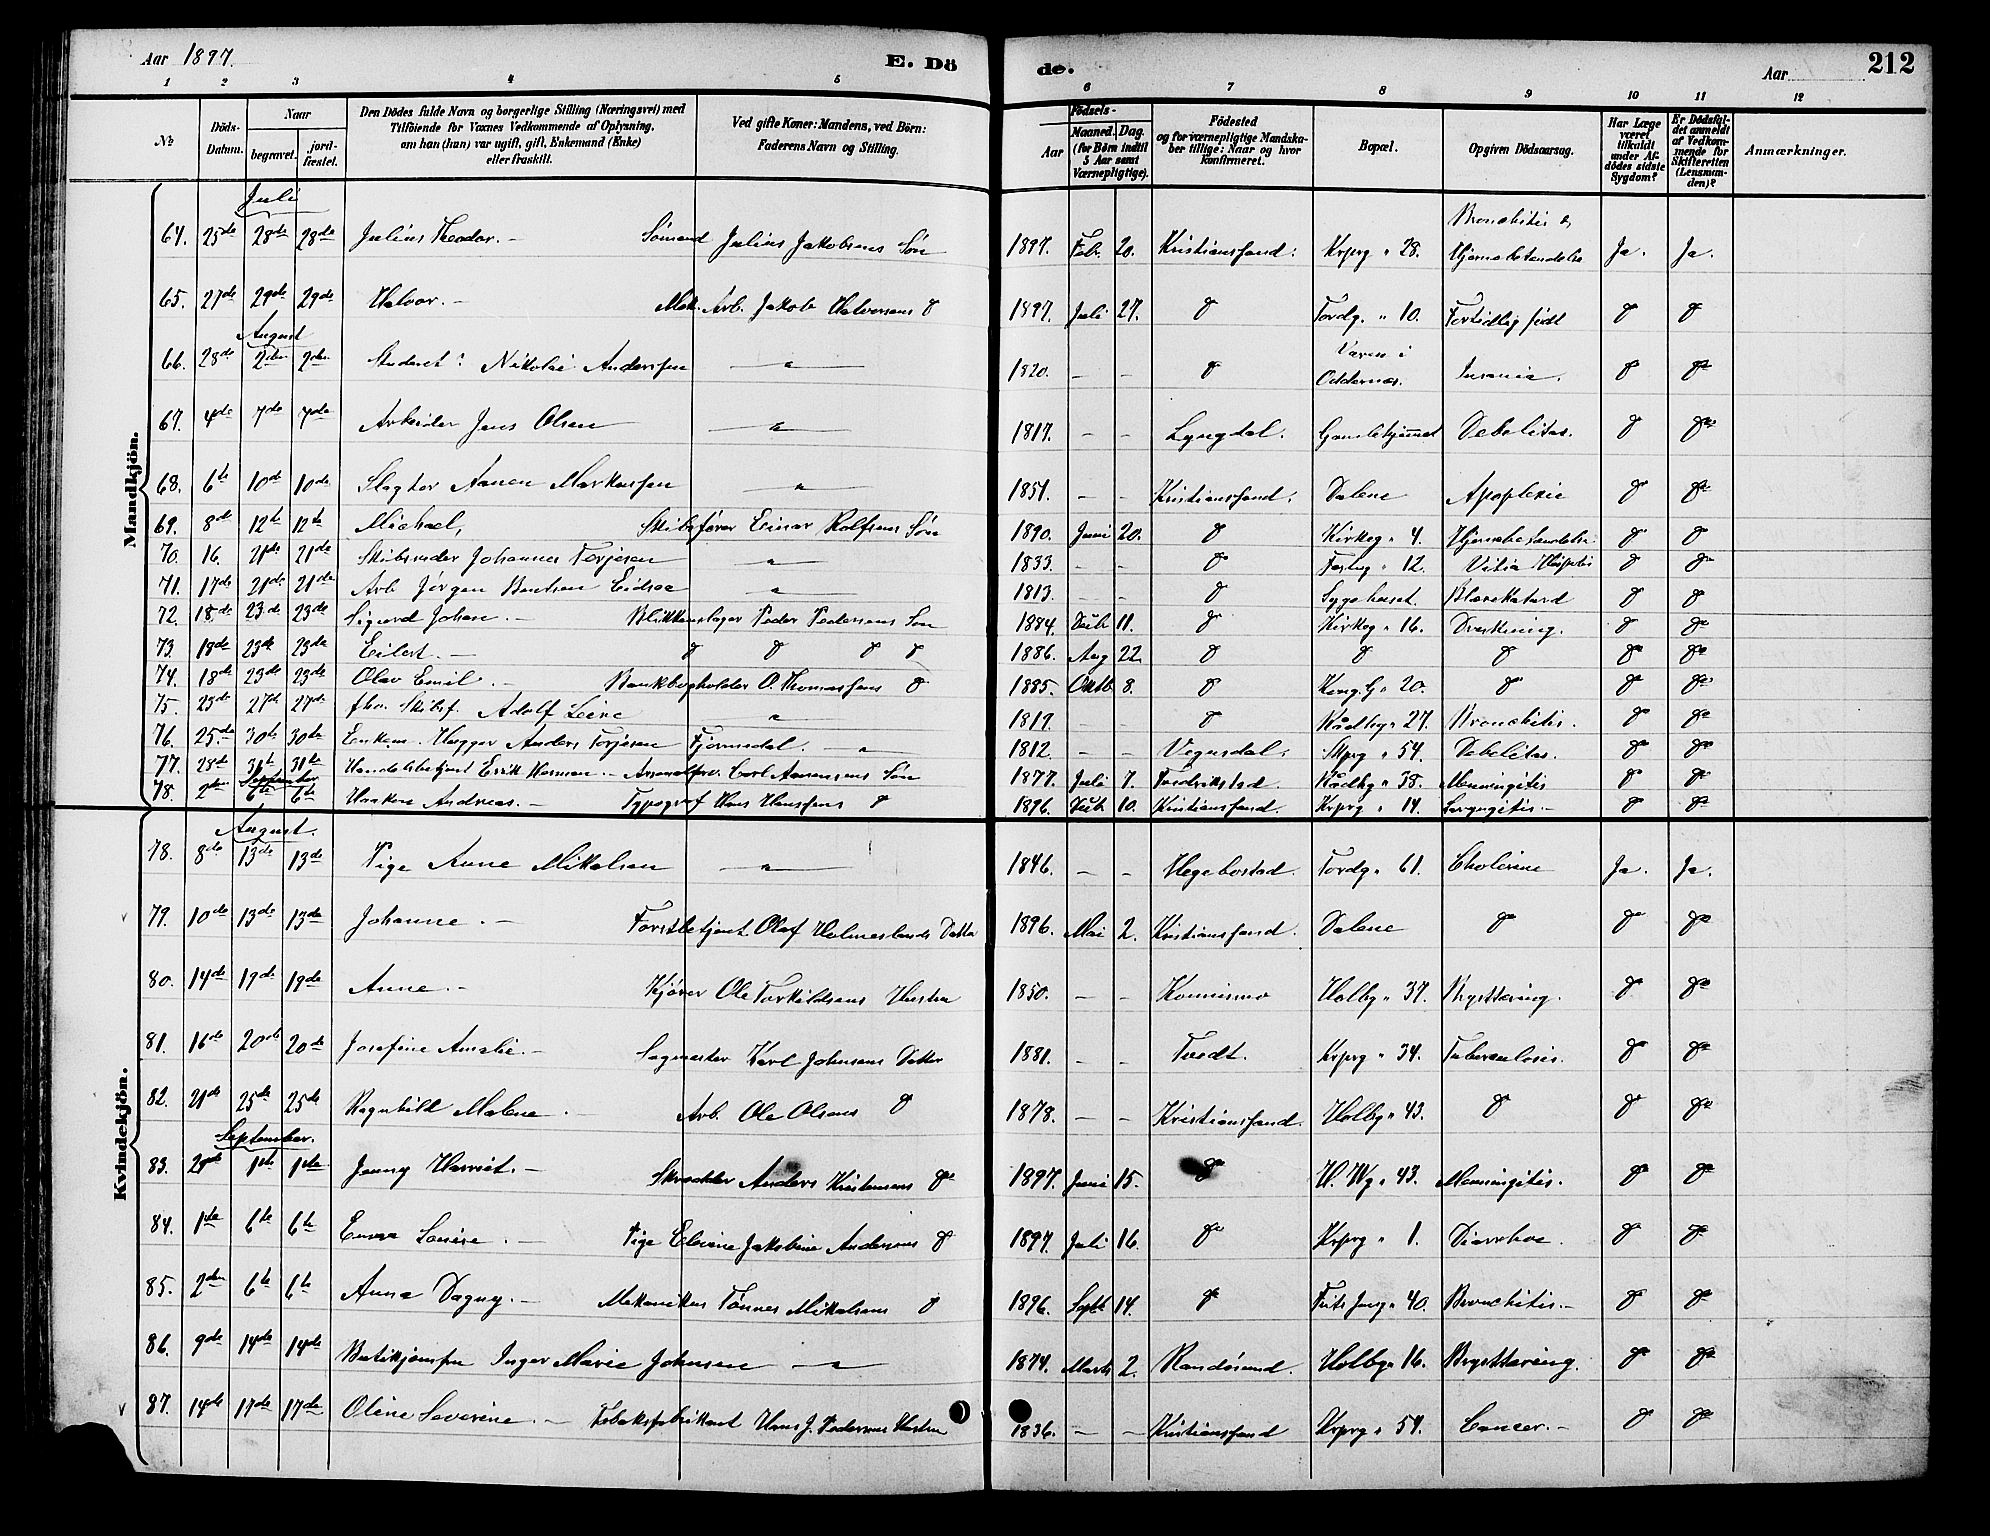 Aar 1897. E. Dö de. Aar 212
1 2 3 4 5 6 7 8 9 10 11 12
No Döds-Datum. Naar begravet. jordfæstet. Den Dödes fulde Navn og borgerlige Stilling (Næringsvei) med Tilföiende for Voxnes Vedkommende af Oplysning, om han (hun) var ugift, gift, Enkemand (Enke) eller fraskilt. Ved gifte Koner: Mandens, ved Börn: Faderens Navn og Stilling. Födsels- Aar Maaned. Dag. (for Börn indtil 5 Aar samt Værnepligtige). Födested og for værnepligtige Mandskaber tillige: Naar og hvor konfirmeret. Bopæl. Opgiven Dödsaarsag. Har Læge været tilkaldt under Afdödes sidste Sygdom? Er Dödsfaldet anmeldt af Vedkommende for Skifteretten (Lensmanden)? Anmærkninger.
Mandkjön.
Juli
64. 25de 28de 28de Julius Theodor. — Sömand Julius Jakobsens Sön 1897. Feb. 20. Kristianssand. Krprg " 28. Bronchitis & Hjernebetændelse Ja. Ja.
65. 27de 29de 29de Halvor. — Mek. Arb. Jakob Halvorsens d 1897. Juli 27. d Tordg. " 10. Fortidlig födt d d
August
66. 28de 2den 2den Student: Nikolai Anderssen — " — 1820. — — d i Oddernæs. Insania. d do
67. 4de 7de 7de Arbeider Jens Olsen — " — 1817. — — Lyngdal. Gamlehjemmet Debelitas. d do
68. 6te 10de 10de Slagter Aanen Markussen — " — 1851. — — Kristianssand. Dalene Apoplexie d do
69. 8de 12te 12te Michael, Skibsförer Einar Rolfsens Sön 1890. Juni 20. d Kirkeg " 4. Hjernebetændelse d d
70. 16. 21de 21de Skibsreder Johannes Torjesen — " — 1833. — — do Festng " 12. Vitia d do
71. 17de 21de 21de Arb Jörgen Bentsen — " — 1813. — — d Sygehuset. Blærekatarrh d d
72. 18de 23de 23de Sigurd Johan. — Blikkenslager Peder Pedersens Sön 1884. 11. do Kirkeg " 16. Drukning. d do
73. 18de 23de 23de Eilert. — d d d d 1886. Aug 22. d d d do do
74. 18de 23de 23de Olav Emil. — Bankbogholder O. Thomassens d 1885. Oktb 8. d Kong. G " 20. d d do
75. 23de 27de 27de fhv. Skibsf. Adolf — " — 1817. — — d Rådhg " 27. Bronchitis. d do
76. 25de 30de 30de Enkem. Hugger Anders Torjesen Fjermedal. — " — 1812. — — Vegusdal. Skprg " 54. Debelitas. do do
77. 28de 31te 31te Handelsbetjent Erik Herman — Carl Aanensens Sön 1877. Juli 7. Fredrikstad. Rådhg " 38. Meningitis do do
September
78. 2den 6te 6te Haakon Andreas. — Typograf Hans Hanssens d 1896. 10. Kristianssand. Krprg " 14. Laryngitis. — d do
Kvindekjön.
August.
78. 8de 13de 13de Pige Anne Mikalsen — " — 1846. — — Hegebostad. Tordg " 61. Cholerine Ja. Ja.
79. 10de 13de 13de Johanne. — Forstbetjent Olaf Holmeslands Datter 1896. Mai 2. Kristianssand. Dalene do d do
80. 14de 19de 19de Anne. — Kjörer Ole Torkildsens Hustru 1850. — — Holbg " 37. Brysttæring. d do
81. 16de 20de 20de Josefine Amalie. — Sagmester Karl Johnsens Datter 1881. — — Tvedt. Krprg " 34. Tuberculosis. d do
82. 21de 25de 25de Ragnhild Malene. — Arb. Ole Olsens d 1878. — — Kristianssand. Holbg " 43. d d do
September.
83. 29de 1ste 1ste Jenny Harriet. — Skrædder Anders Kristensens do 1897. Juni 15. do H. Wg " 43. Meningitis. do do
84. 1ste 6te 6te Emma Louise. — Pige Elvine Jakobine Andersens d 1897. Juli 16. do Krprg " 1. Diarrhoe. d do
85. 2den 6te 6te Anna Dagny. — Mekanikus Tönnes Mikalsens d 1896. Septb 14. do " 40. Bronchitis. — d do
86. 9de 14de 14de Butikjomfru Inger Marie Johnsen — " — 1874. Marts 2. Randösund. Holbg " 16. Brysttæring. do do
87. 14de 17de 17de Oline Severine. — Tobaksfabrikant Hans J. Pedersens Hustru 1836. — — Kristianssand Krprg " 54. Cancer. — d do